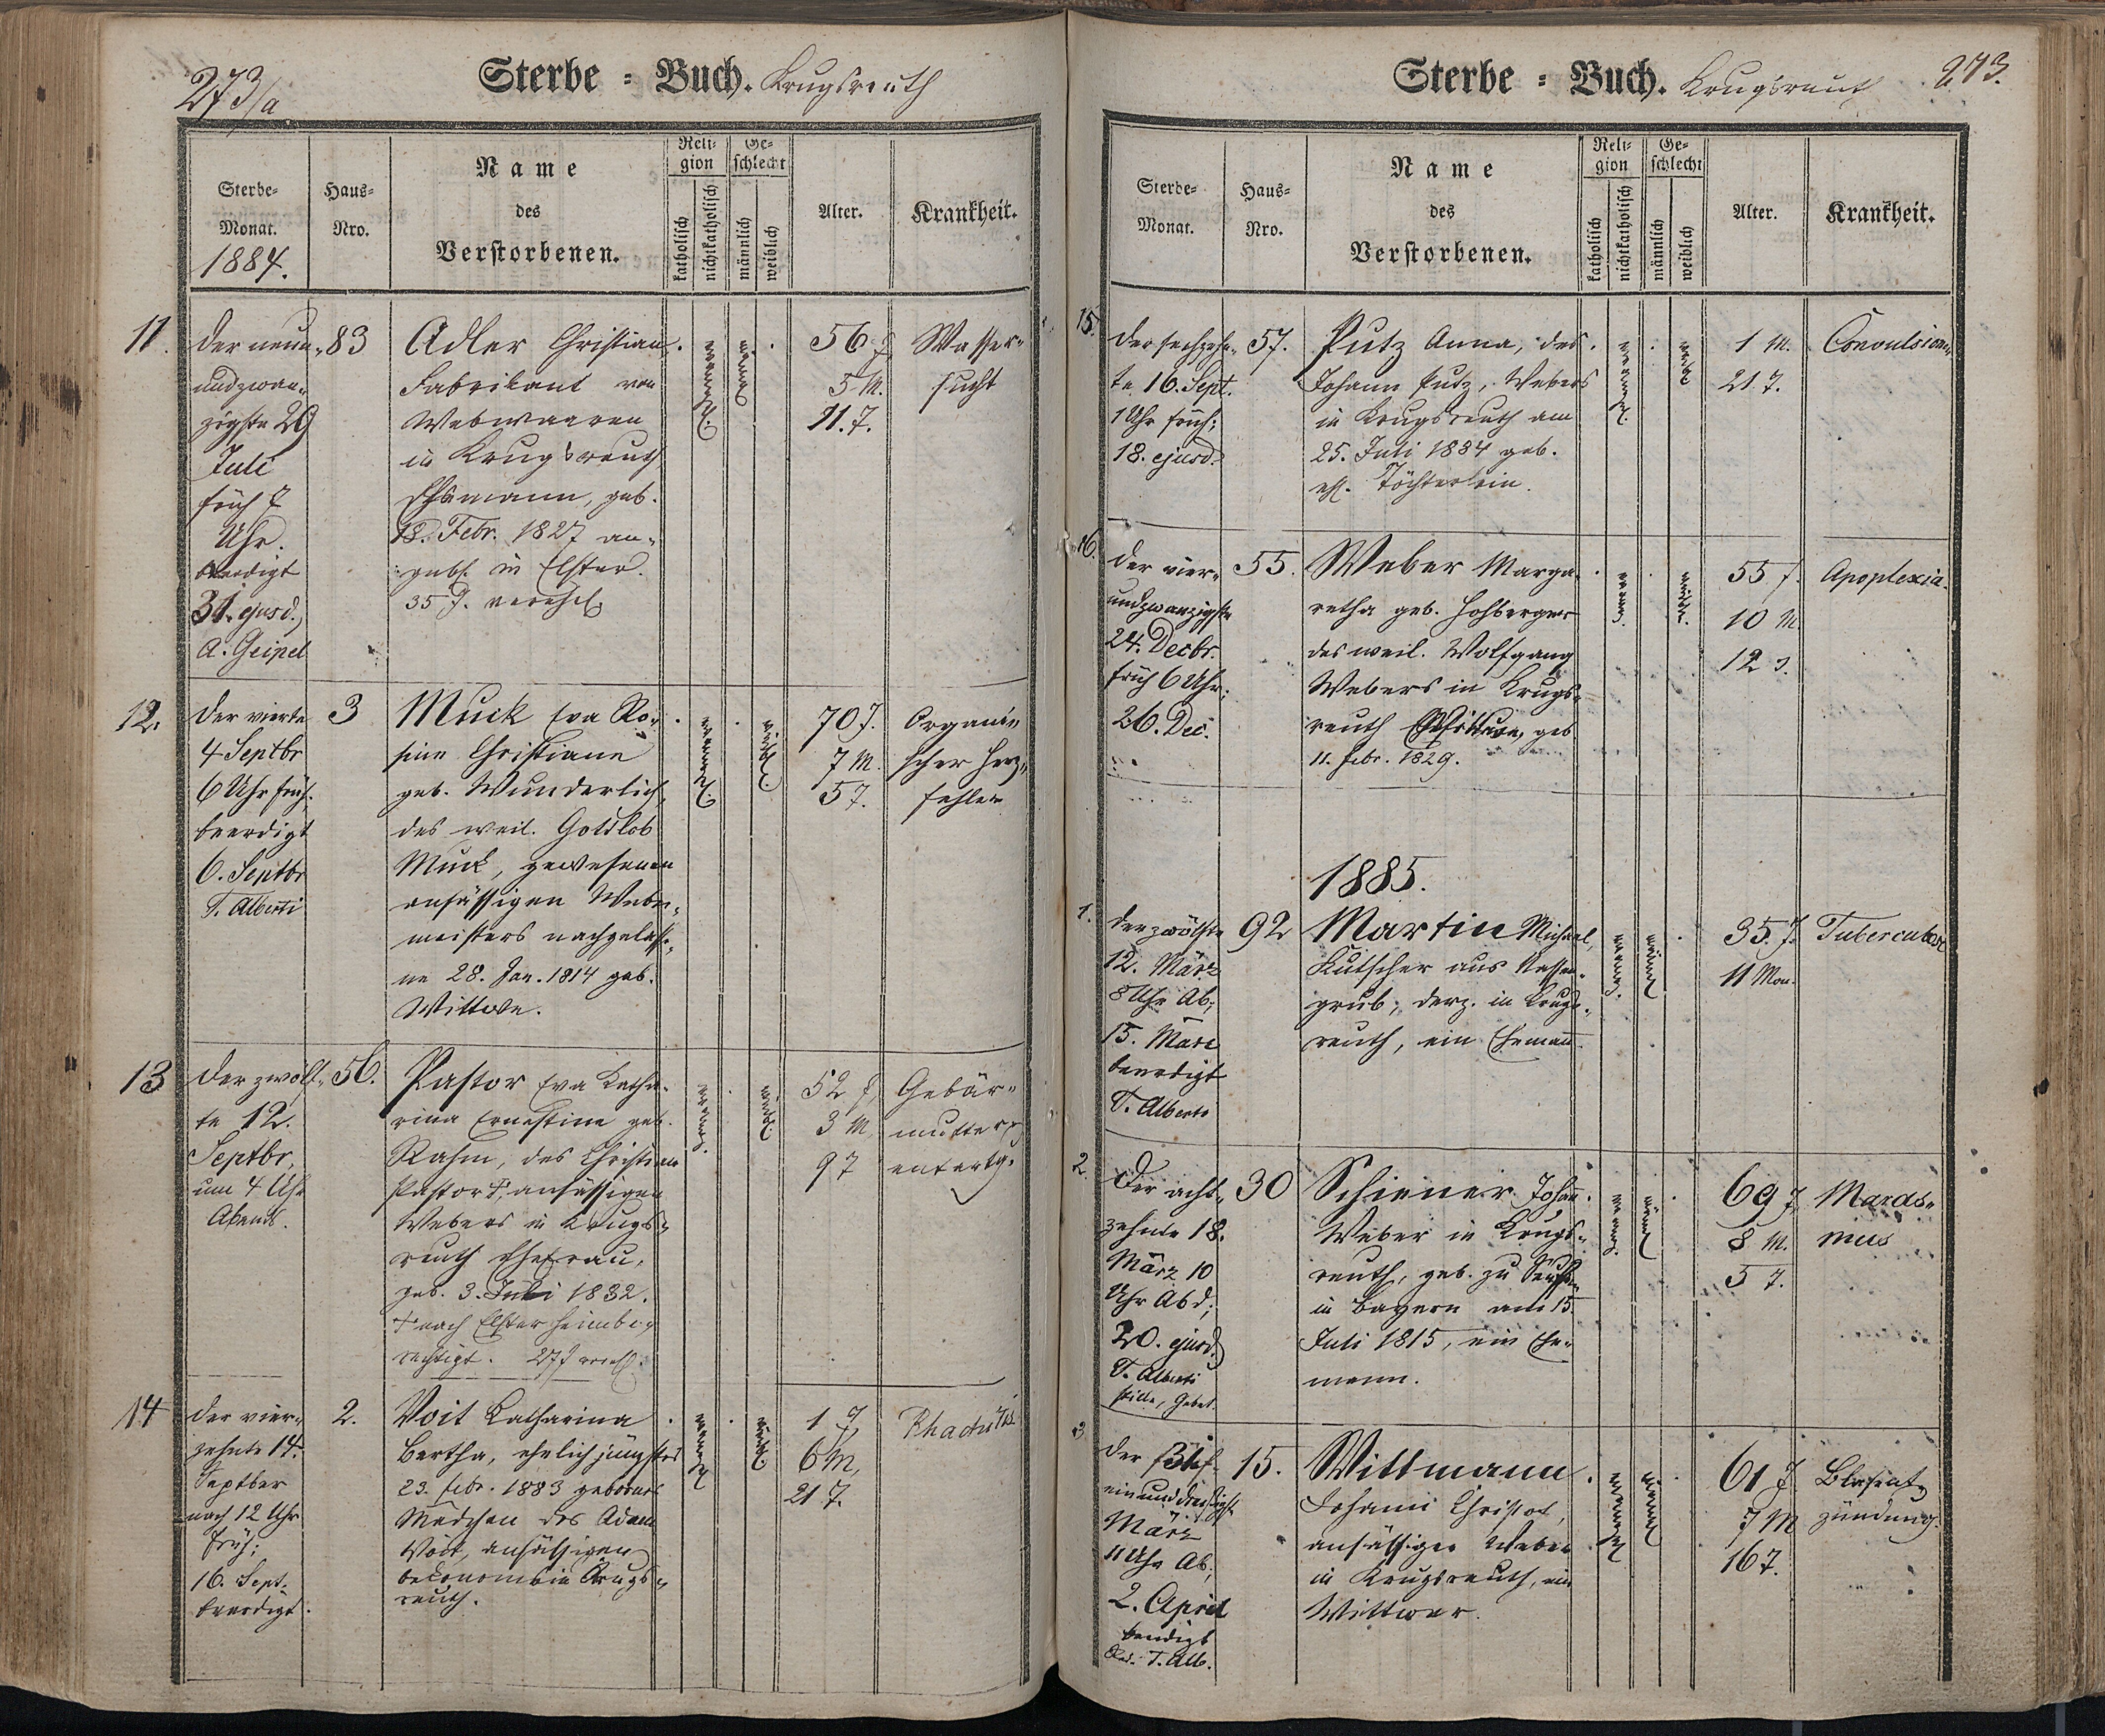 273/a
Sterbe = Buch. Krugsreuth
Sterbe-
Monat.
1884.
Haus-
Nro.
Name
des
Verstorbenen.
Reli-
gion
katholisch
nichtkatholisch
Ge-
schlecht
männlich
weiblich
Alter.
Krankheit.
11.
der neun-
undzwan-
zigste 29
Juli
früh 7
Uhr.
beerdigt
31. ejusd.
A. Geipel
83
Adler Christian,
Fabrikant von
Webwaaren
in Krugsreuth
Ehemann, geb.
18. Febr. 1827 an-
gebl. in Elster.
35 J. verehel.
56 J.
5 M.
11. T.
Wasser-
sucht
12.
der vierte
4 Septbr
6 Uhr früh.
beerdigt
6. Septbr
T. Alberti
3
Muck Eva Ro-
sine Christiane
geb. Wunderlich,
des weil. Gottlob
Muck, gewesenen
ansässigen Weber-
meisters nachgelasse-
ne 28. Jan. 1814 geb.
Wittwe.
70 J.
7 M.
5 T.
Organi-
scher Herz-
fehler
13
der zwölf-
te 12.
Septbr,
um 4 Uhr
Abends.
56.
Pastor Eva Katha-
rina Ernestine geb.
Rahm, des Christian
Pastor †, ansässigen
Webers in Krugs-
reuth Ehefrau,
geb. 3. Juli 1832.
† nach Elster heimbe-
rechtigt. 27 J verehl.
52 J,
3 M,
9 T
Gebär-
mutter
entartg.
14
der vier-
zehnte 14.
Septber
nach 12 Uhr
früh;
16. Sept.
beerdigt.
2.
Voit Katharina
Bertha, ehelich jüngstes
23. Febr. 1883 geborenes
Mädchen des Adam
Voit, ansässigen
Oekonom in Krugs-
reuth.
1 J,
6 M,
21 T.
Rhachitis
Sterbe = Buch. Krugsreuth
273.
Sterbe-
Monat.
Haus-
Nro.
Name
des
Verstorbenen.
Reli-
gion
katholisch
nichtkatholisch
Ge-
schlecht
männlich
weiblich
Alter.
Krankheit.
15.
der sechzehn-
te 16. Sept.
1 Uhr früh;
18. ejusd.
57.
Putz Anna, des
Johann Putz, Webers
in Krugsreuth am
25. Juli 1884 geb.
ehl. Töchterlein.
1 M.
21 T.
Convulsionen
16.
der vier-
undzwanzigste
24. Decbr.
früh 6 Uhr;
26. Dec.
55.
Weber Marga-
retha geb. Hohberger
des weil. Wolfgang
Webers in Krugs-
reuth Wittwe, geb
11. Febr. 1829.
55 J.
10 M.
12 T.
Apoplexia.
1885.
1.
der zwölfte
12. März
8 Uhr Ab;
15. März
beerdigt
T. Alberti
92
Martin Michael,
Kutscher aus Nassen-
grub, derz. in Krugs-
reuth, ein Ehemann.
35. J.
11 Mon.
Tuberculose
2.
Der acht-
zehnte 18.
März 10
Uhr Abd;
20. ejusd.
T. Alberti
stille, Gebet.
30
Schiener Johann.
Weber in Krugs-
reuth, geb. zu
in Bayern am 15.
Juli 1815, ein Ehe-
mann.
69 J,
8 M.
5 T.
Maras-
mus
3
der 31st
einunddreißigste
März
11 Uhr Ab;
2. April
beerdigt
T. Alb.
15.
Wittmann
Johann Christof,
ansässiger Weber
in Krugsreuth, ein
Wittwer.
61 J
7 M
16 T.
Blasent-
zündung.